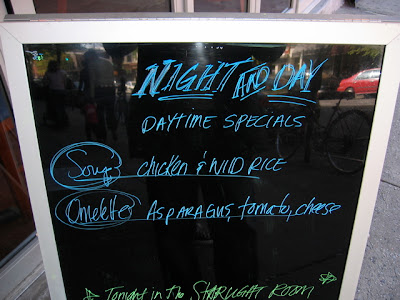 NIGHT AND DAY
DAYTIME SPECIALS
Soup chicken & WILD RICE
Omelette ASPARAGUS, tomato, cheese
Tonight in the STARLIGHT ROOM